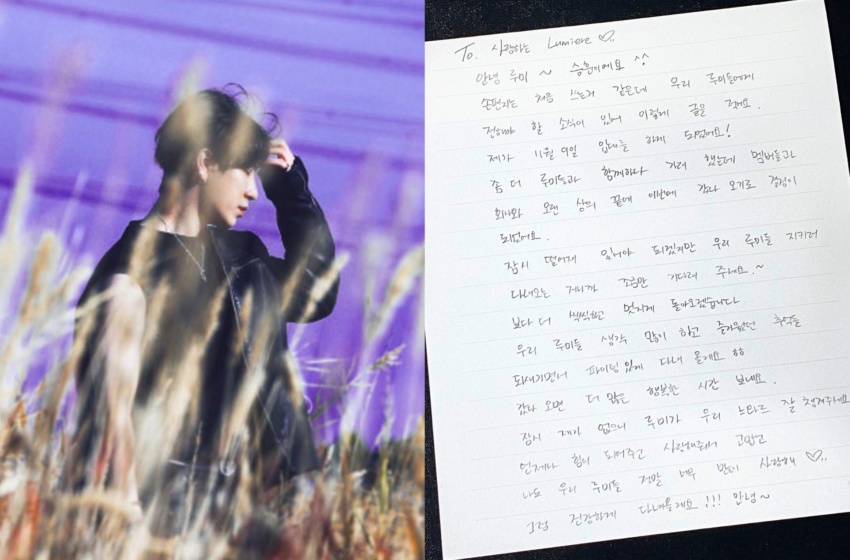 To. 사랑하는 Lumiere ♡..
안녕 루미 ~ 승훈이에요 ^^
손편지는 처음 쓰는거 같은데 우리 루미들에게
전해야 할 소식이 있어 이렇게 글을 적어요.
제가 11월 9일 입대를 하게 되었어요!
좀 더 루미들과 함께하나 거려 했는데 멤버들과
회사와 오랜 상의 끝에 이번에 갔다 오기로 결정이
되었어요.
잠시 떨어져 있어야 되겠지만 우리 루미들 지키러
다녀오는 거니까 조금만 기다려 주세요.~
보다 더 씩씩하고 멋지게 돌아오겠습니다.
우리 루미들 생각 많이 하고 즐거웠던 추억들
되새기면서 파이팅 있게 다녀 올게요 ㅎㅎ
갔다 오면 더 많은 행복한 시간 보내요.
잠시 제가 없으니 루미가 우리 느와르 잘 챙겨주세요
언제나 힘이 되어주고 사랑해줘서 고맙고
나도 우리 루미들 정말 너무 많이 사랑해 ♡..
그럼 건강하게 다녀올게요!!! 안녕~